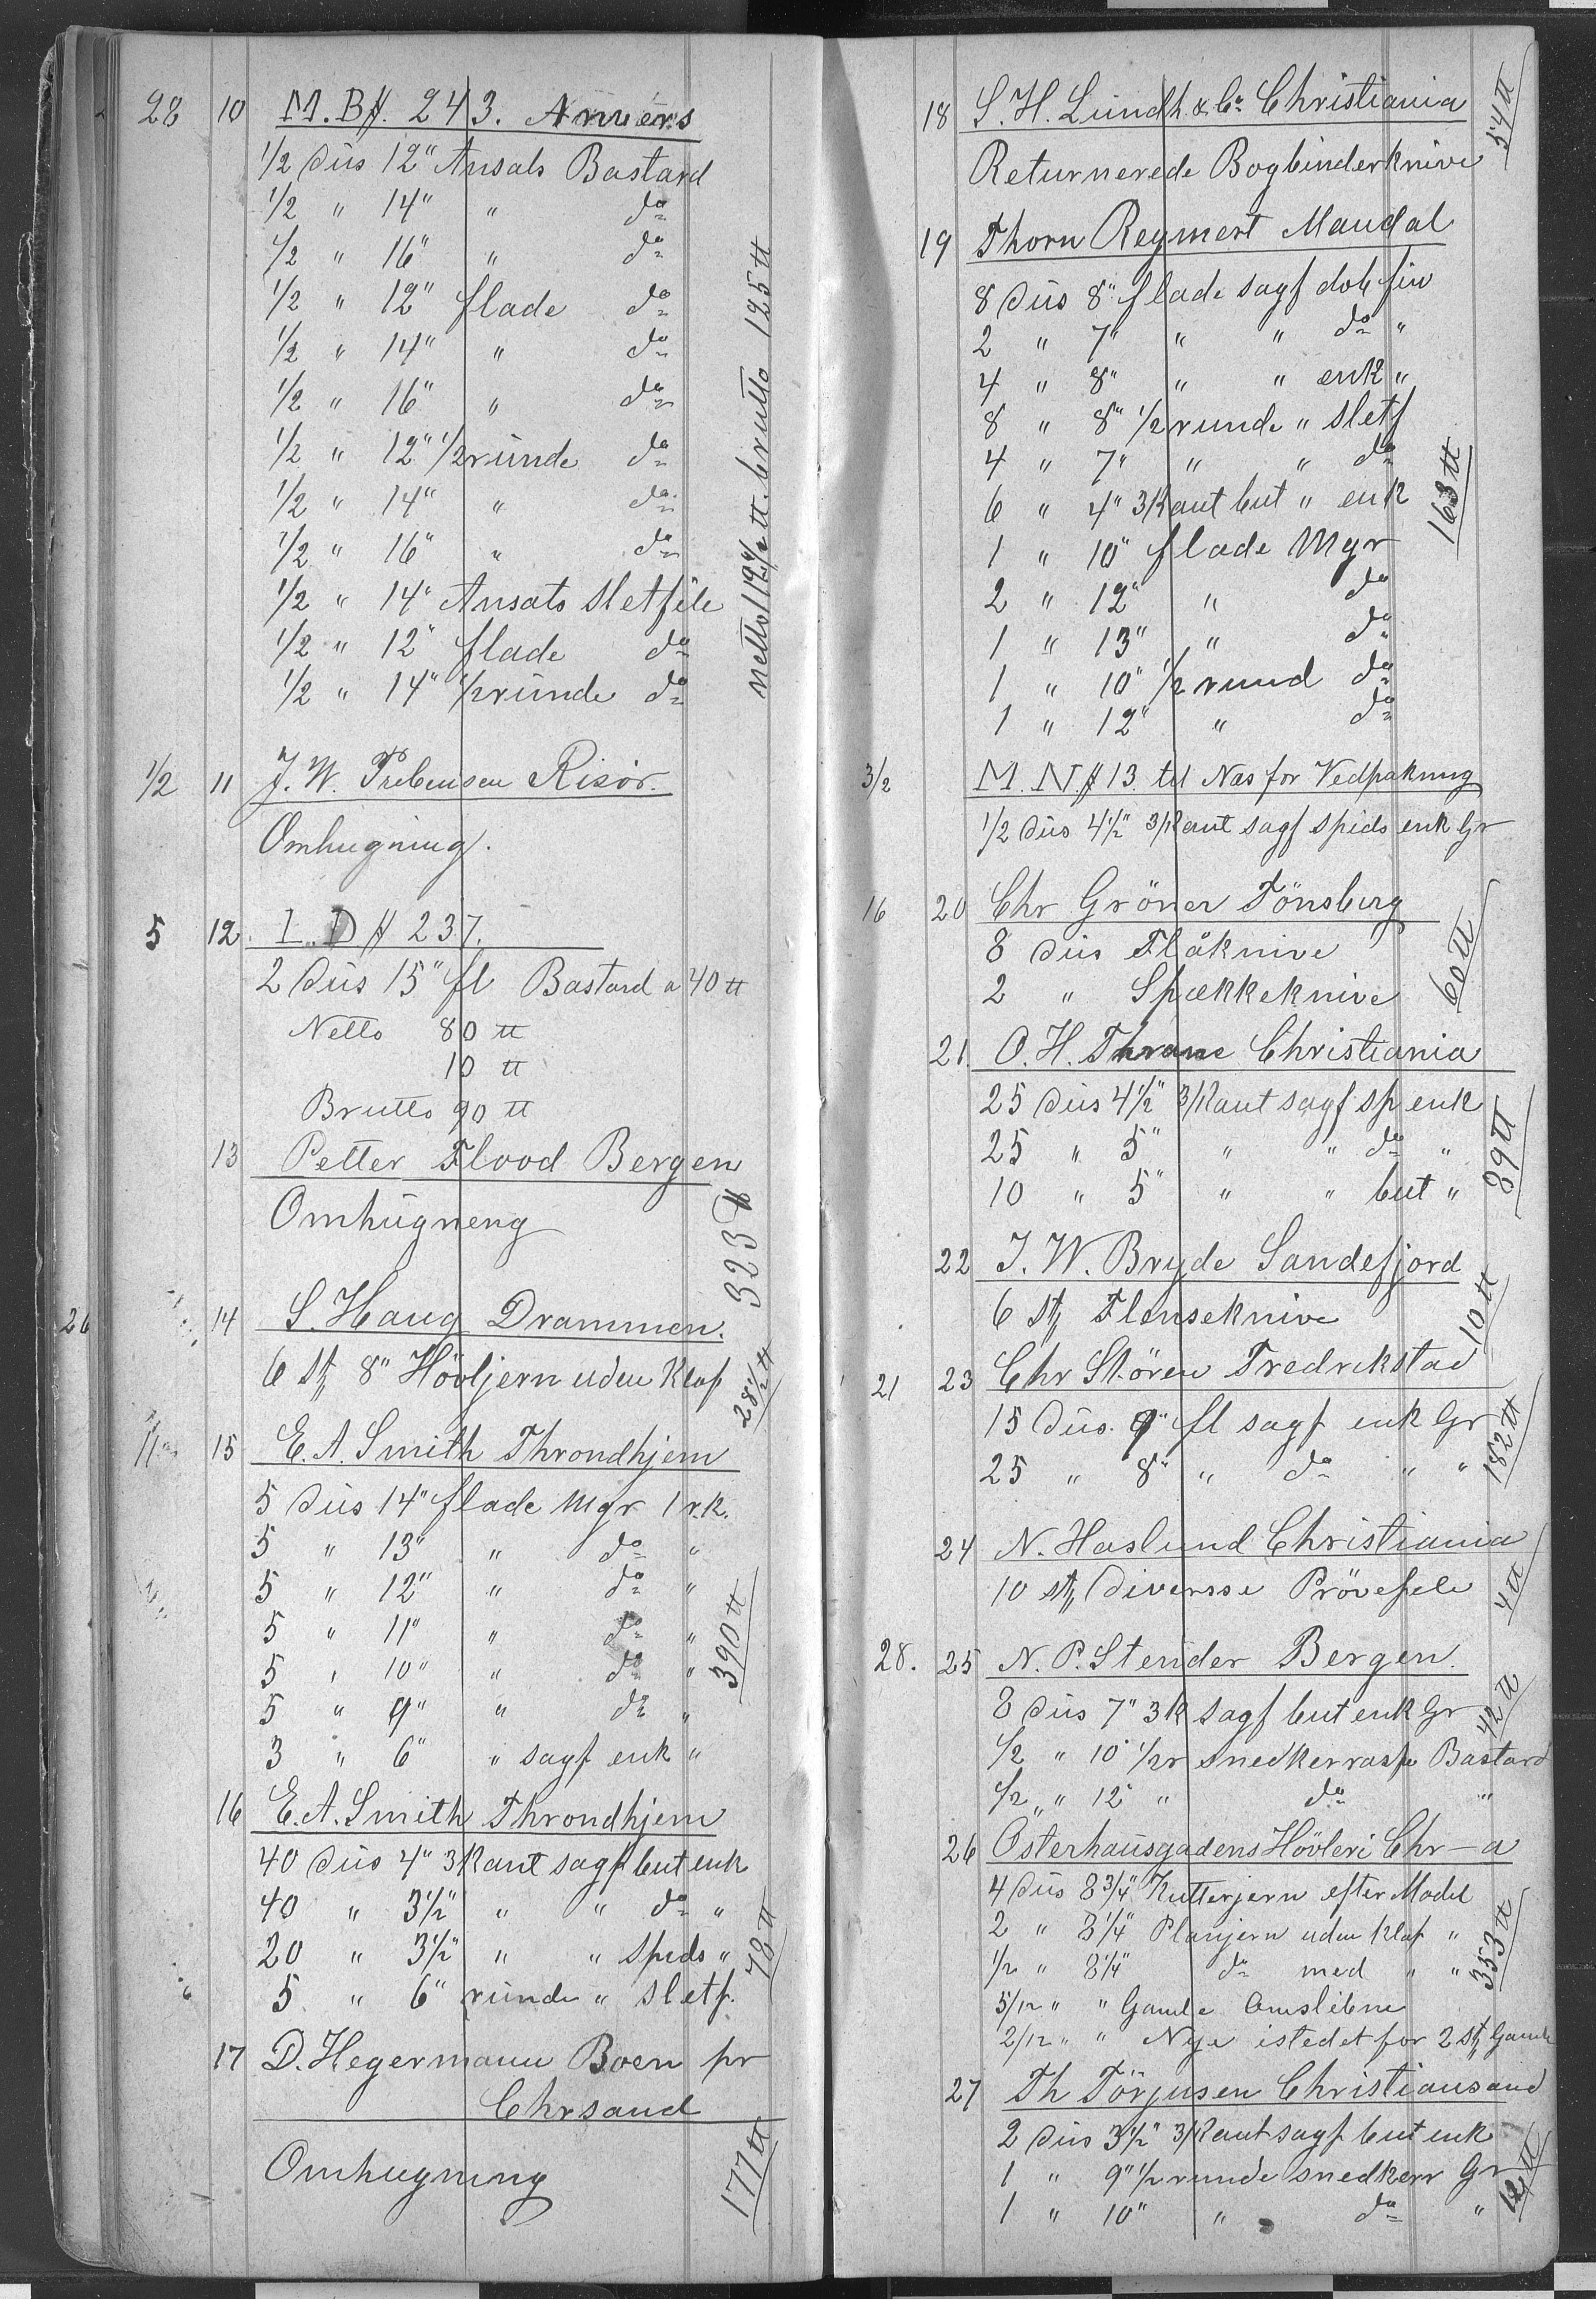 28 10 M. B # 243. Anvers
1/2 dus 12" Ansats Bastard
1/2 " 14" " do
1/2 " 16" " do
1/2 " 12" flade do
1/2 " 14" " do
1/2 " 16" " do
1/2 " 12" 1/2 runde do
1/2 " 14" " do
1/2 " 16" " do
1/2 " 14" Ansats Sletfile
1/2 " 12" flade do
1/2 " 14" 1/2 runde do
brutto 125 ℔
1/2 11 J. W. Prebensen Risör.
Omhugning.
5 12. I. D # 237.
2 dus 15" fl Bastard a 40 ℔
Netto 80 ℔
10 ℔
Brutto 90 ℔
13 Petter Flood Bergen
Omhugneng
323 ℔
26 14 S. Haug Drammen.
6 st 8" Hövljern uden Klaf
28 1/2 ℔
11 15 E. A. Smith Throndhjem
5 dus 14" flade Mgr 1 r.k.
5 " 13" " do "
5 " 12" " do "
5 " 11" " do "
5 " 10" " do "
5 " 9" " do "
3 " 6" " sagf enk "
390 ℔
16 E. A. Smith Throndhjem
40 dus 4" 3kant sagf but enk
40 " 3 1/2" " " do "
20 " 3 1/2" " " spids "
5 " 6" runde " Sletf.
78 ℔
17 D. Hegermann Boen pr
Chrsand
Omhugning
177 ℔
18 S. H. Lundh & Co Christiania
Returnerede Bogbinderknive
54 ℔
19 Thorn Reymert Mandal
8 dus 8" flade sagf dob fin
2 " 7" " " do "
4 " 8" " " enk "
8 " 8" 1/2 runde " sletf
4 " 7" " " do
6 " 4" 3kant but " enk
1 " 10" flade Mgr
2 " 12" " do
1 " 13" " do
1 " 10" 1/2 rund do
1 " 12" " do
163 ℔
3/2 M. N # 13. til Næs for Vedpakning
1/2 dus 4 1/2" 3/Kant sagf spids enk Gr
16 20 Chr Gröner Tönsberg
8 dus Flåknive
2 " Spækkeknive
60 ℔
21. O. H. Thrane Christiania
25 dus 4 1/2" 3/Kant sagf sp enk
25 " 5" " " do "
10 " 5" " " but "
39 ℔
22 J. W. Bryde Sandefjord
6 st Flenseknive
10 ℔
21 23 Chr Stören Fredrikstad
15 dus. 9" fl sagf enk Gr
25 " 8" " do " "
182 ℔
24 N. Haslund Christiania
10 st diversse Pröve
4 ℔
28. 25 N. P. Stender Bergen.
8 dus 7" 3k sagf but enk Gr
1/2 " 10" 1/2 r snedkerraspe Bastard
1/2 " 12" " do "
42 ℔
26 Osterhausgadens Hövleri Chr-a
4 dus 8 3/4" Kutterjern efter Model
2 " 8 1/4" Planjern uden Klaf "
1/2 " 8 1/4" do med " "
5/12 " " Gamle
2/12 " " Nye istedet for 2 st Gamle
353 ℔
27 Th Törjusen Christiansand
2 dus 3 1/2" 3/Kant sagf but enk
1 " 9" 1/2 runde snedkerr Gr
1 " 10" " do "
12 ℔